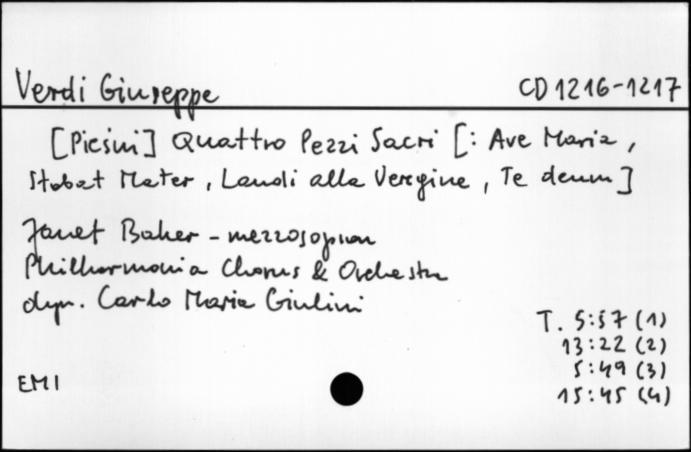 Verdi Giuseppe CD 1216-1217
[Pieśni] Quattro Pezzi Sacri [: Ave Maria,
Stabat Mater, Laudi alla Veregine, Te deum]
Janet Baker - mezzosopran
Philharmonia Chorus & Orchestra
dyr. Carlo Maria Giulini
T. 5:57 (1)
13:22 (2)
5:49 (3)
EMI
15:45 (4)